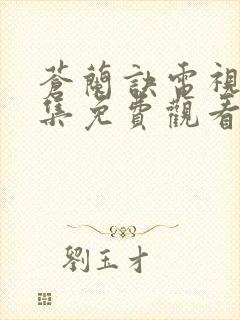 蒼蘭訣電視
集免費觀看
劉玉才